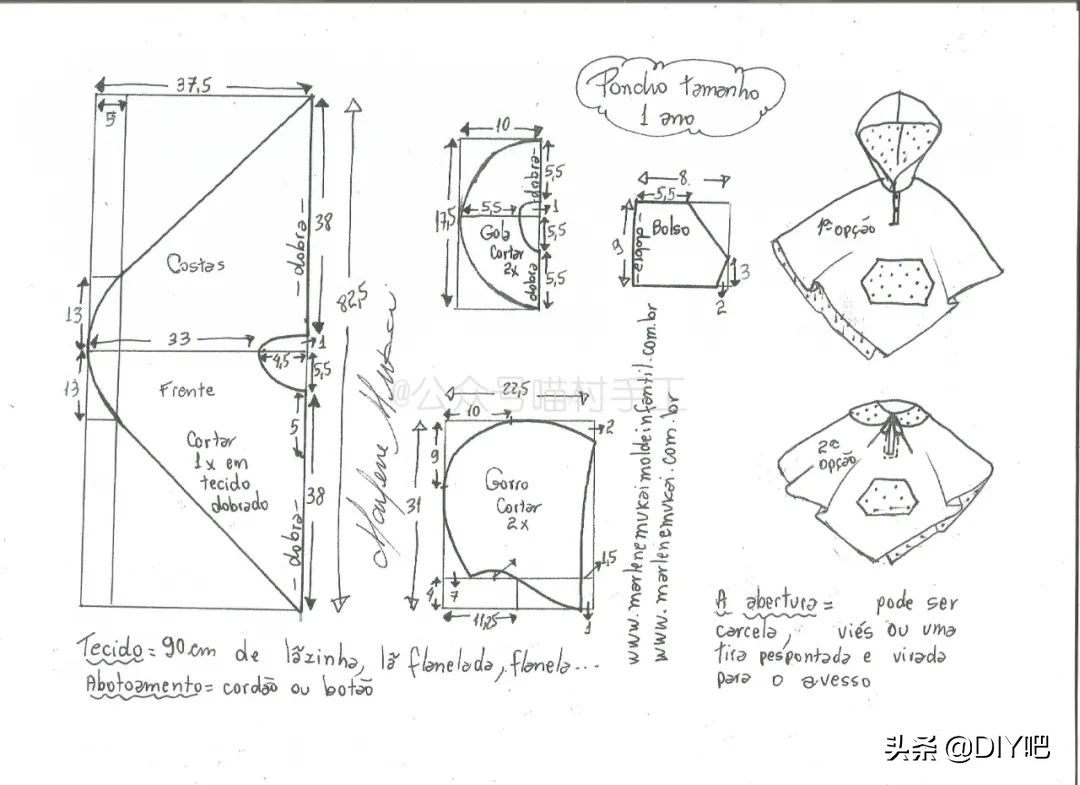 Poncho tamanho
1 ano
37,5
5
38
- dobra -
Costas
13
33
1
4,5
5,5
13
Frente
5
Cortar
1x em
tecido
dobrado
38
- dobra -
82,5
10
dobra-
5,5
17,5
5,5
1
Gola
Cortar
2x
5,5
dobra
5,5
8
5,5
9
-dobra-
Bolso
3
2
1ª opção
@公众号喵村手工
22,5
10
2
9
Gorro
Cortar
2x
31
1,5
4
7
11,25
1
Marlene Mukai
www.marlenemukaimoldeinfantil.com.br
www.marlenemukai.com.br
2ª
opção
A abertura= pode ser
carcela, viés ou uma
tira pespontada e virada
para o avesso
Tecido= 90cm de lãzinha, lã flanelada, flanela...
Abotoamento= cordão ou botão
头条 @DIY吧